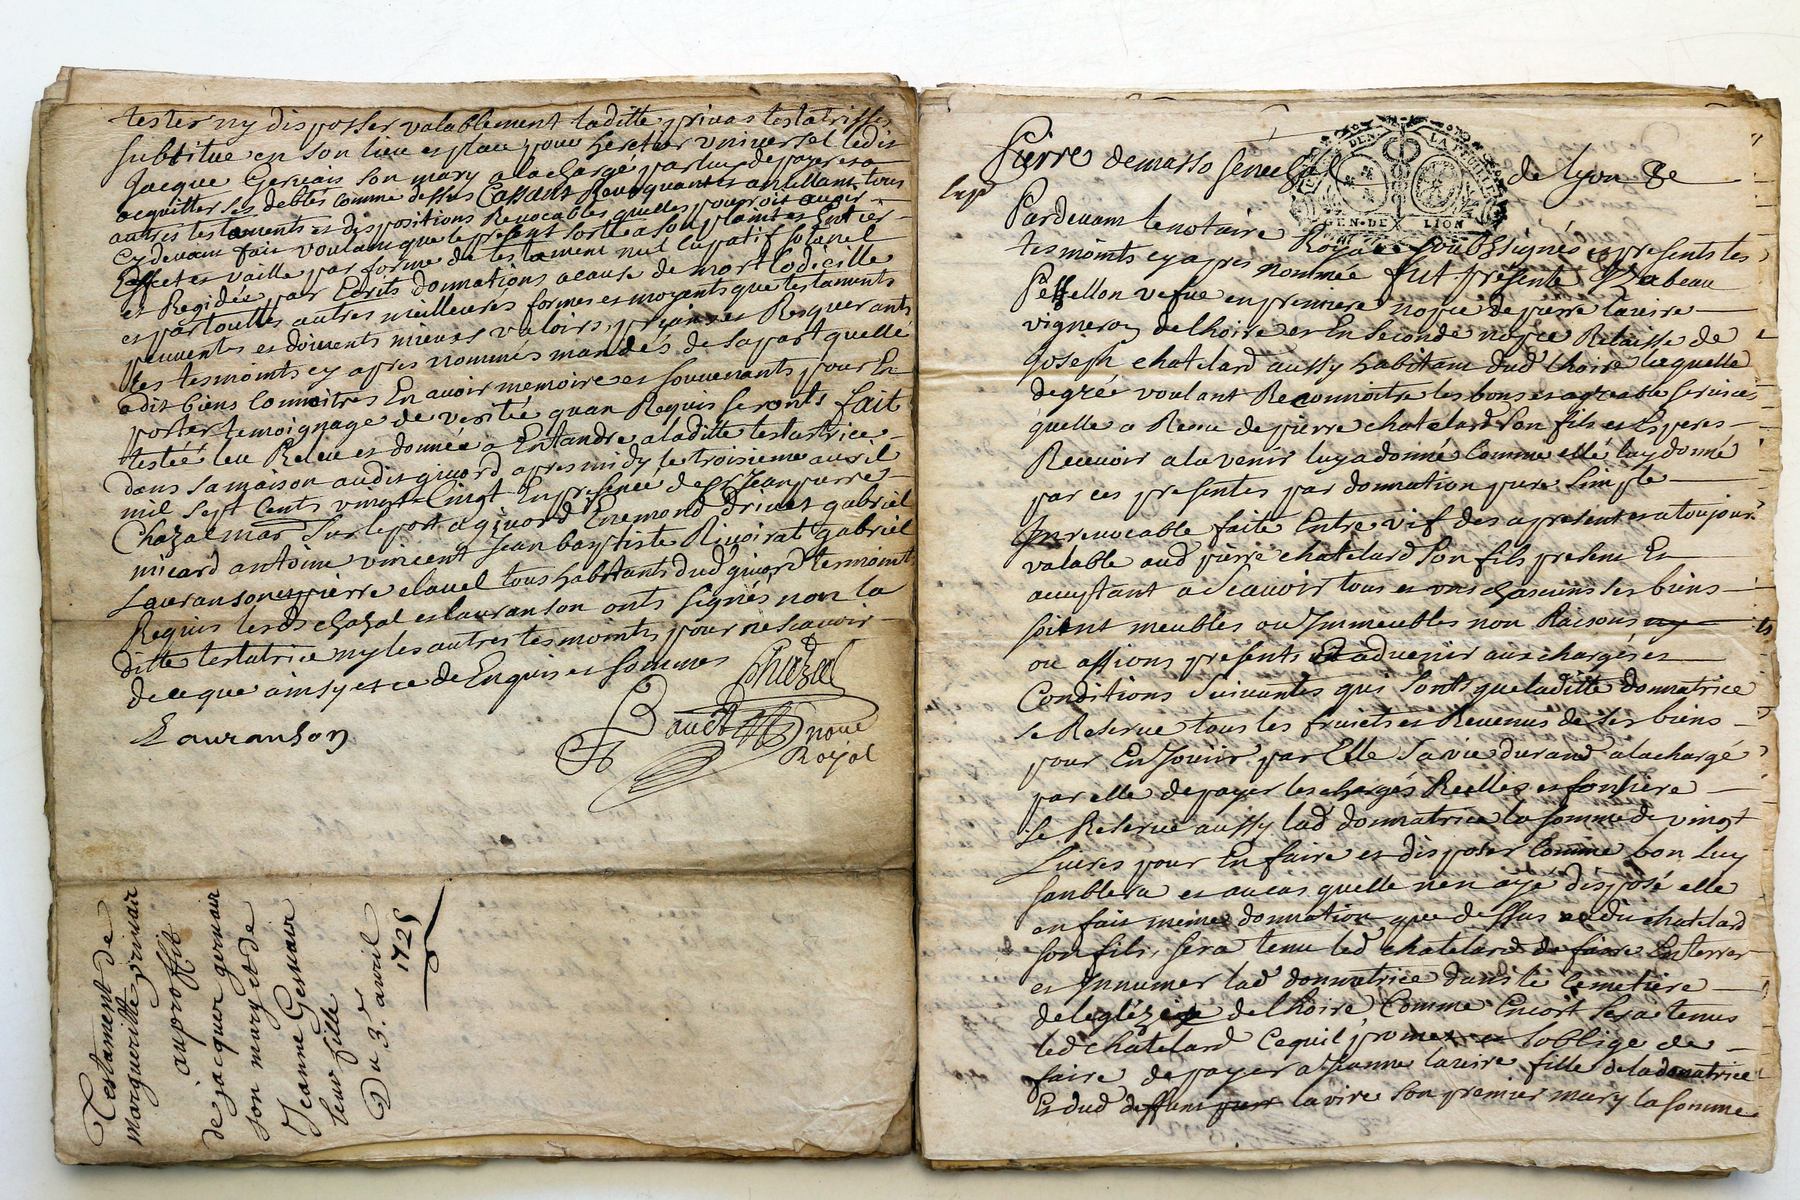 tester ny disposser valablement laditte privas testatrisse
substitue en son lieu et place pour heretier universel ledit
Jacque Gervais son mary a la chargé par luy de payer et a
acquitter ses debtes comme dessus Cassant Revoquant et anullant tous
autres testaments et dispositions Revocables quelles pouroit avoir
Cy devant fait voulant que le present sorte a son plain et Entier
Effect et vaille par forme de testament nuncupatif solenel
et Redigée par Ecrits donnations a cause de mort Codicille
et par touttes autres meilleures formes et moyents que testaments
peuvents et doivents mieux valoirs, pryant et Requerants
les tesmoints cy apres nommés mandés de sa part quelle
a dit biens Connoitres En avoir memoire et souvenants pour En
porter temoignage de verité quan Requis seronts fait
testée leu Releu et donnée a Entandre a laditte testatrice
dans sa maison audit givord apres midy le troisieme avril
mil sept Cents vingt Cingt En presence de Sr Jean pierre
Chazal mar sur le port a givord Enemond Drivet gabriel
micard antoine vincent Jean baptiste Rivoirat gabriel
Lauranson et pierre clavel tous habitants dud givord tesmoints
Requis lesds chazal et lauranson onts signés non la
ditte testatrice ny les autres tesmoints pour ne scavoir
de ce que ainsy et ce de Enquis et sommes
Chazal
Lauranson
Royal
Testament de
margueritte privais
au proffit
de jacques gervais
son mary et de
Jeanne Gervais
leur fille
Du 3e avril
1725
Pierre demasso senechal de lyon &c
GEN. DE LION
Pardevant le notaire Royal soubssignés et presents les
tesmoints cy apres nommée fut presente Izabeau
Pellellon vefue en premiere nopce de pierre lavire
vigneron de lhoire et En seconde nopce Relaisse de
Joseph chatelard aussy habitant dud lhoire laquelle
de grée voulant Reconnoitre les bons et agreable services
quelle a Receu de pierre chatelard son fils et Esperes
Recevoir a lavenir luy a donné Comme elle luy donné
par ces presentes par donnation pure simple
Inrevocable faite Entre vif des a present et a toujour
valable aud pierre chatelard son fils present En
acceptant a scavoir tous et uns chascuns ses biens
soient meubles ou Immeubles non Raisons
ou assions presents Et advenir aux chargés et
Conditions suivantes qui sonts que laditte donnatrice
se Reserve tous les fruicts et Revenus de ses biens
pour En Jouir par Elle sa vie durand a la chargé
par elle de payer les chargés Reelles et fonsiere
se Reserve aussy lad donnatrice la somme de vingt
Livres pour En faire et disposer Comme bon luy
semblera et au cas quelle nen aye disposé elle
en fait meme donnation que dessus au du chatelard
son fils, sera tenu led chatelard de faire Enterrer
et Innumer lad donnatrice dans le Cemetiere
de leglize de lhoire Comme Encort sera tenus
led chatelard Ce quil promet et soblige de
faire de payer a Jeanne lavire fille de la donatrice
Et dud deffunt lavire son premier mary la somme